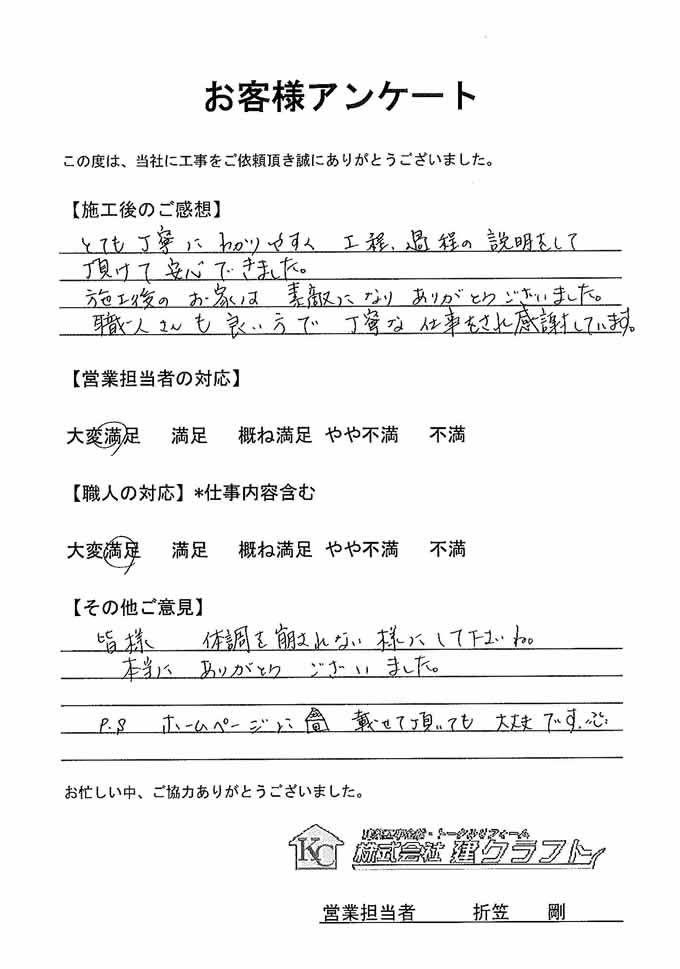 お客様アンケート
この度は、当社に工事をご依頼頂き誠にありがとうございました。
【施工後のご感想】
とても丁寧にわかりやすく 工程、過程の説明をして
頂けて安心できました。
施工後のお家は 素敵になり ありがとうございました。
職人さんも良い方で 丁寧な仕事をされ感謝しています。
【営業担当者の対応】
大変満足 満足 概ね満足 やや不満 不満
【職人の対応】*仕事内容含む
大変満足 満足 概ね満足 やや不満 不満
【その他ご意見】
皆様 体調を崩されない様にして下さいね。
本当に ありがとう ございました。
P.S ホームページに 載せて頂いても 大丈夫です。
お忙しい中、ご協力ありがとうございました。
KC 株式会社 建クラフト
営業担当者 折笠 剛